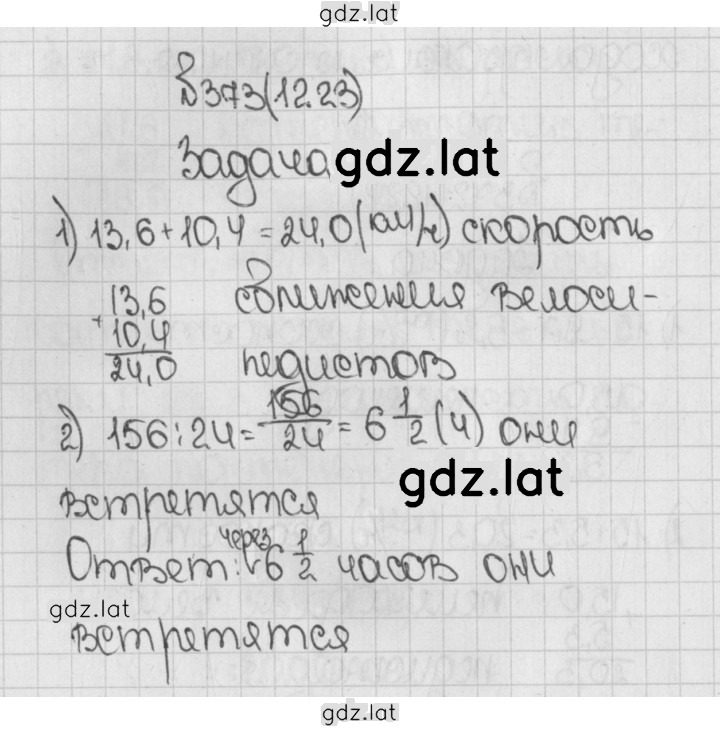 gdz.lat
№373(12.23)
Задача gdz.lat
1) 13,6+10,4=24,0(км/ч) скорость
13,6 сближения велоси-
+10,4
24,0 педистов
2) 156:24=156/24=6 1/2 (ч) они
gdz.lat
встретятся
через
Ответ: 6 1/2 часов они
gdz.lat
встретятся
gdz.lat